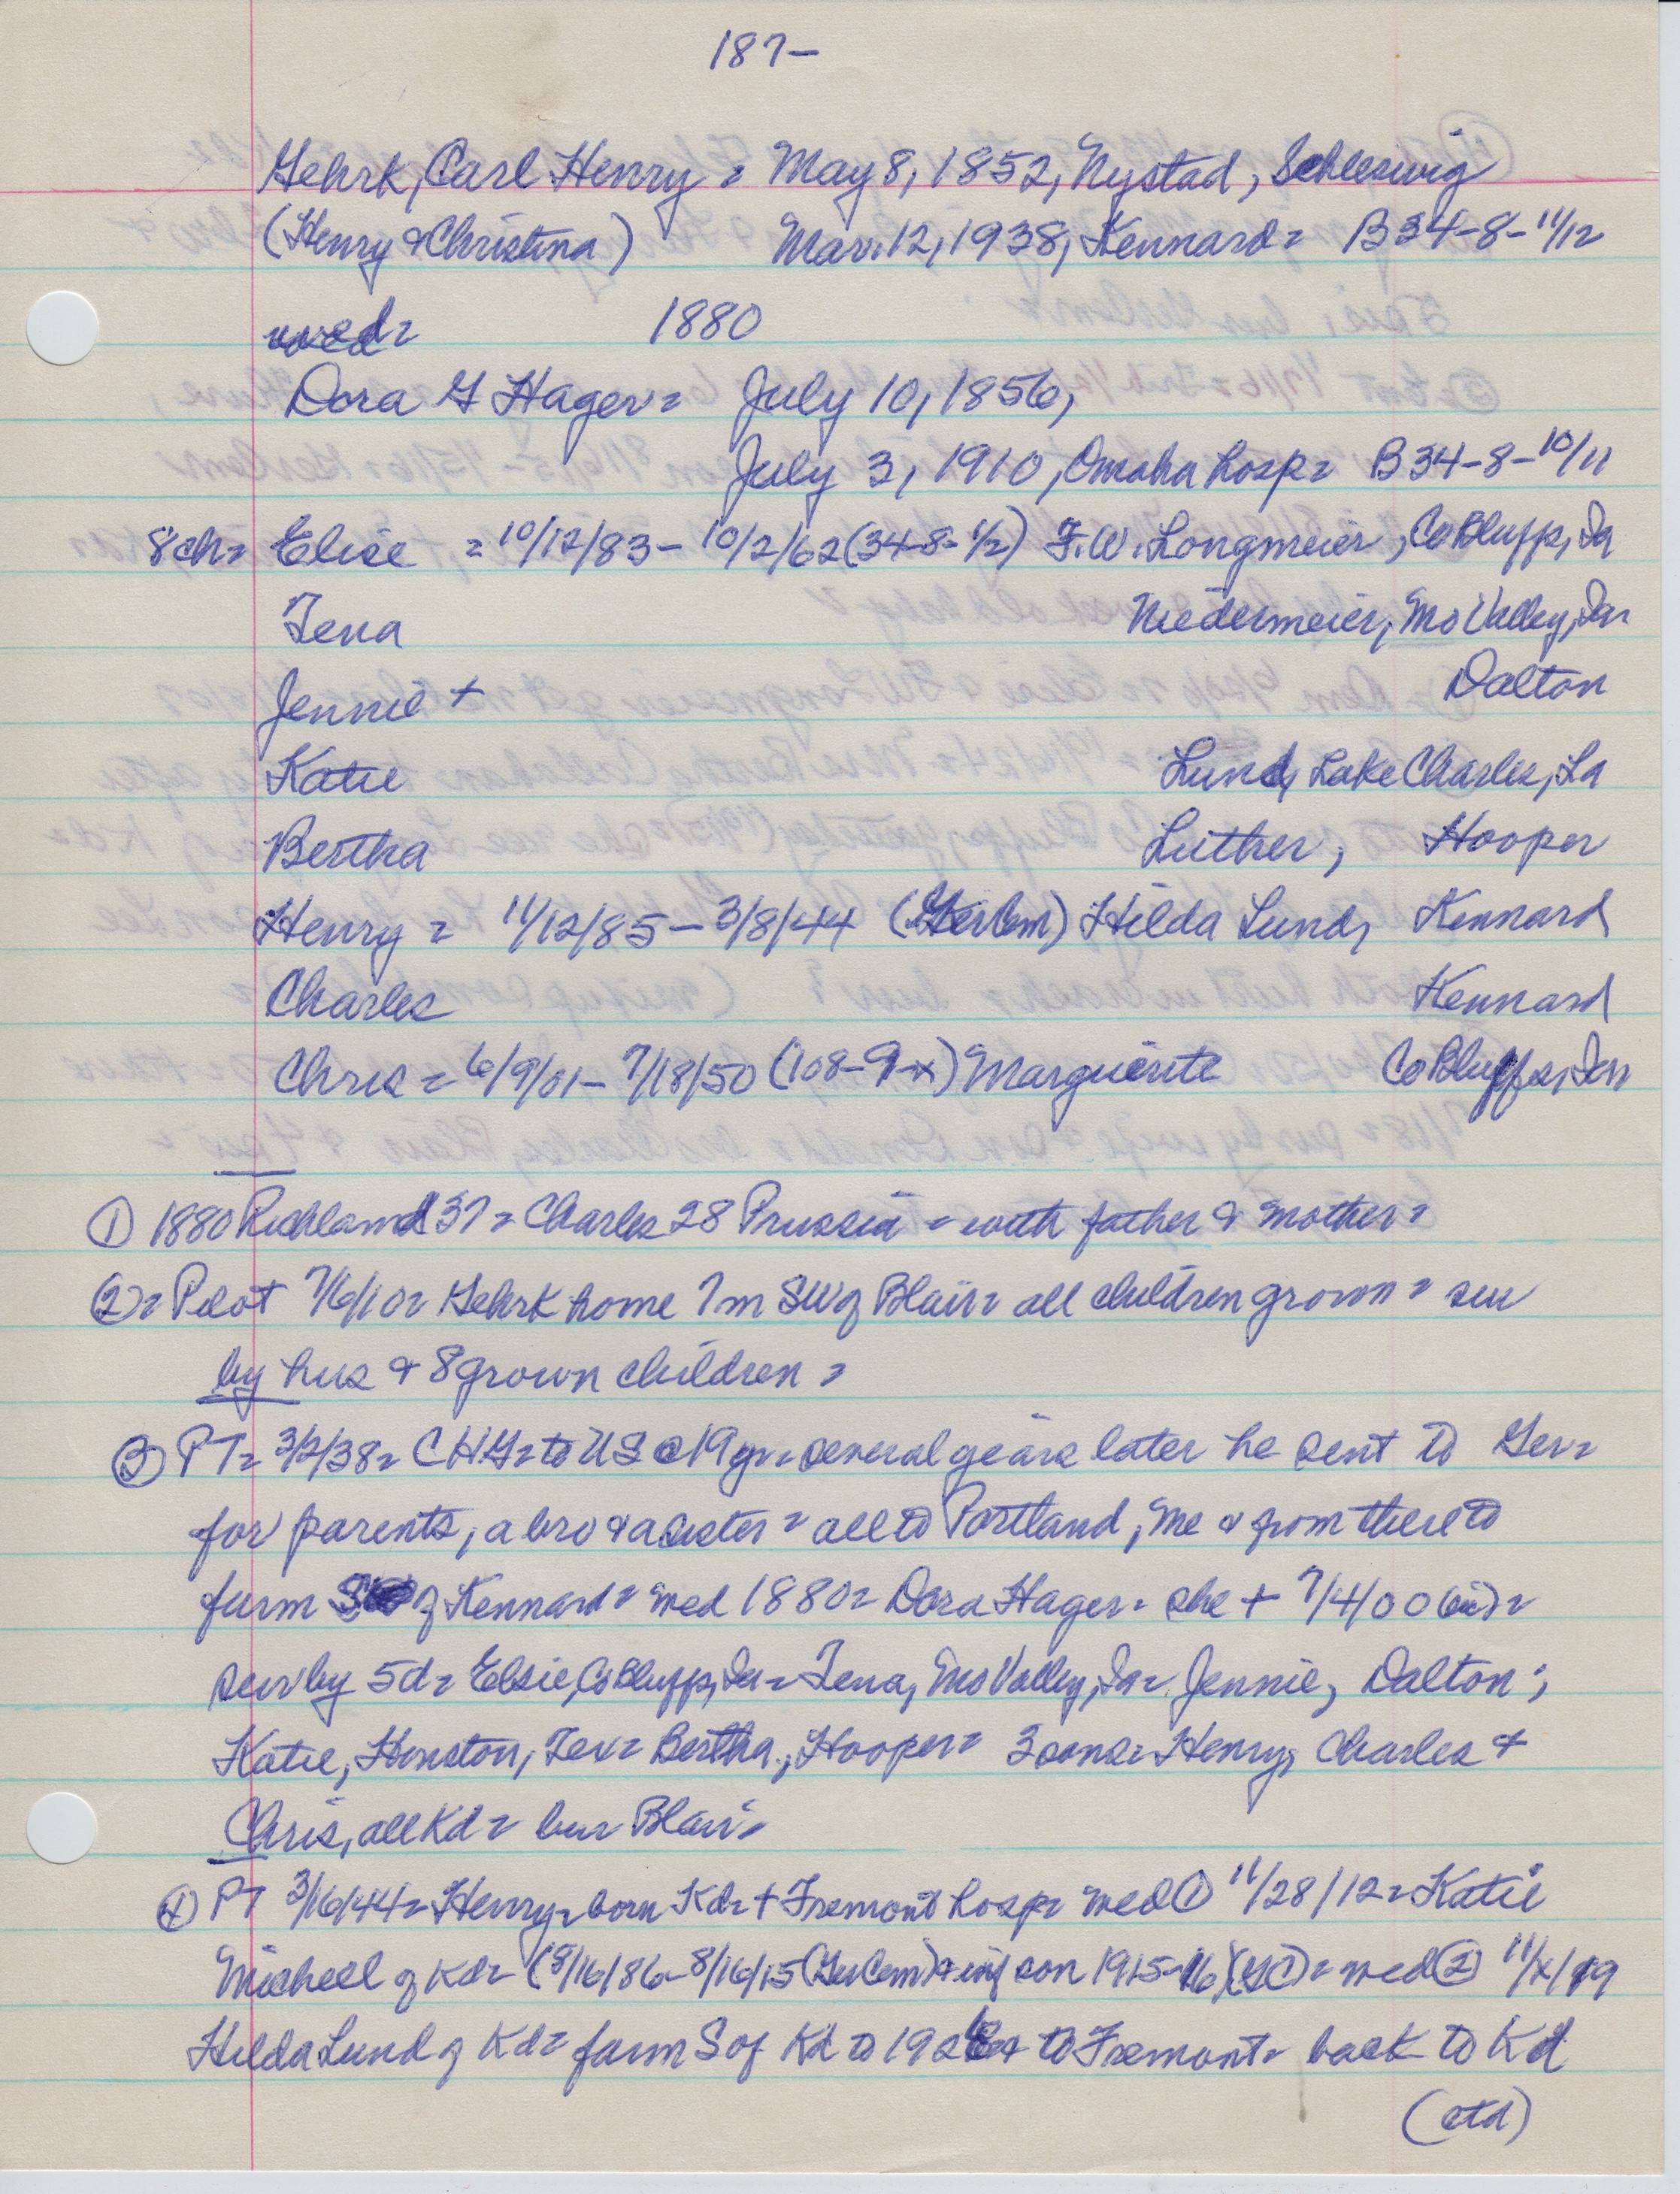 187-
Gehrk, Carl Henry = May 8, 1852, Nystad, Schleswig
(Henry & Christina) Mar. 12, 1938, Kennard = B 34-8-11/12
wed = 1880
Dora G Hager = July 10, 1856,
July 3, 1910, Omaha hosp = B 34-8-10/11
8 ch = Elise = 10/12/83 - 10/2/62 (34-8-1/2) F.W. Longmeier, Co Bluffs, Ia
Tena Niedermeier, Mo Valley, Ia
Jennie + Dalton
Katie Lund, Lake Charles, La
Bertha Luther, Hooper
Henry = 11/12/85 - 3/8/44 (Ger Cem) Hilda Lund, Kennard
Charles Kennard
Chris = 6/9/01 - 7/18/50 (108-9-x) Marguerite Co Bluffs, Ia
① 1880 Richland 37 = Charles 28 Prussia = with father & mother =
② = Pilot 7/6/10 = Gehrk home 7 m SW of Blair = all children grown = sur
by hus & 8 grown children =
③ PT = 3/2/38 = C H G = to US @ 19 yr = several years later he sent to Ger =
for parents, a bro & a sister = all to Portland, Me & from there to
farm of Kennard = wed 1880 = Dora Hager = she + 7/4/00 =
sur by 5 d = Elsie, Co Bluffs, Ia = Tena, Mo Valley, Ia = Jennie, Dalton;
Katie, Houston, Tex = Bertha, Hooper = 3 sons = Henry, Charles +
Chris, all Kd = bur Blair =
④ PT 3/16/44 = Henry = born Kd = + Fremont hosp = wed ① 11/28/12 = Katie
Micheel of Kd = (8/16/86 - 8/16/15 (Ger Cem) & inf son 1915-16) (GC) = wed ② 11/x/19
Hilda Lund of Kd = farm S of Kd to to Fremont = back to Kd
(ctd)